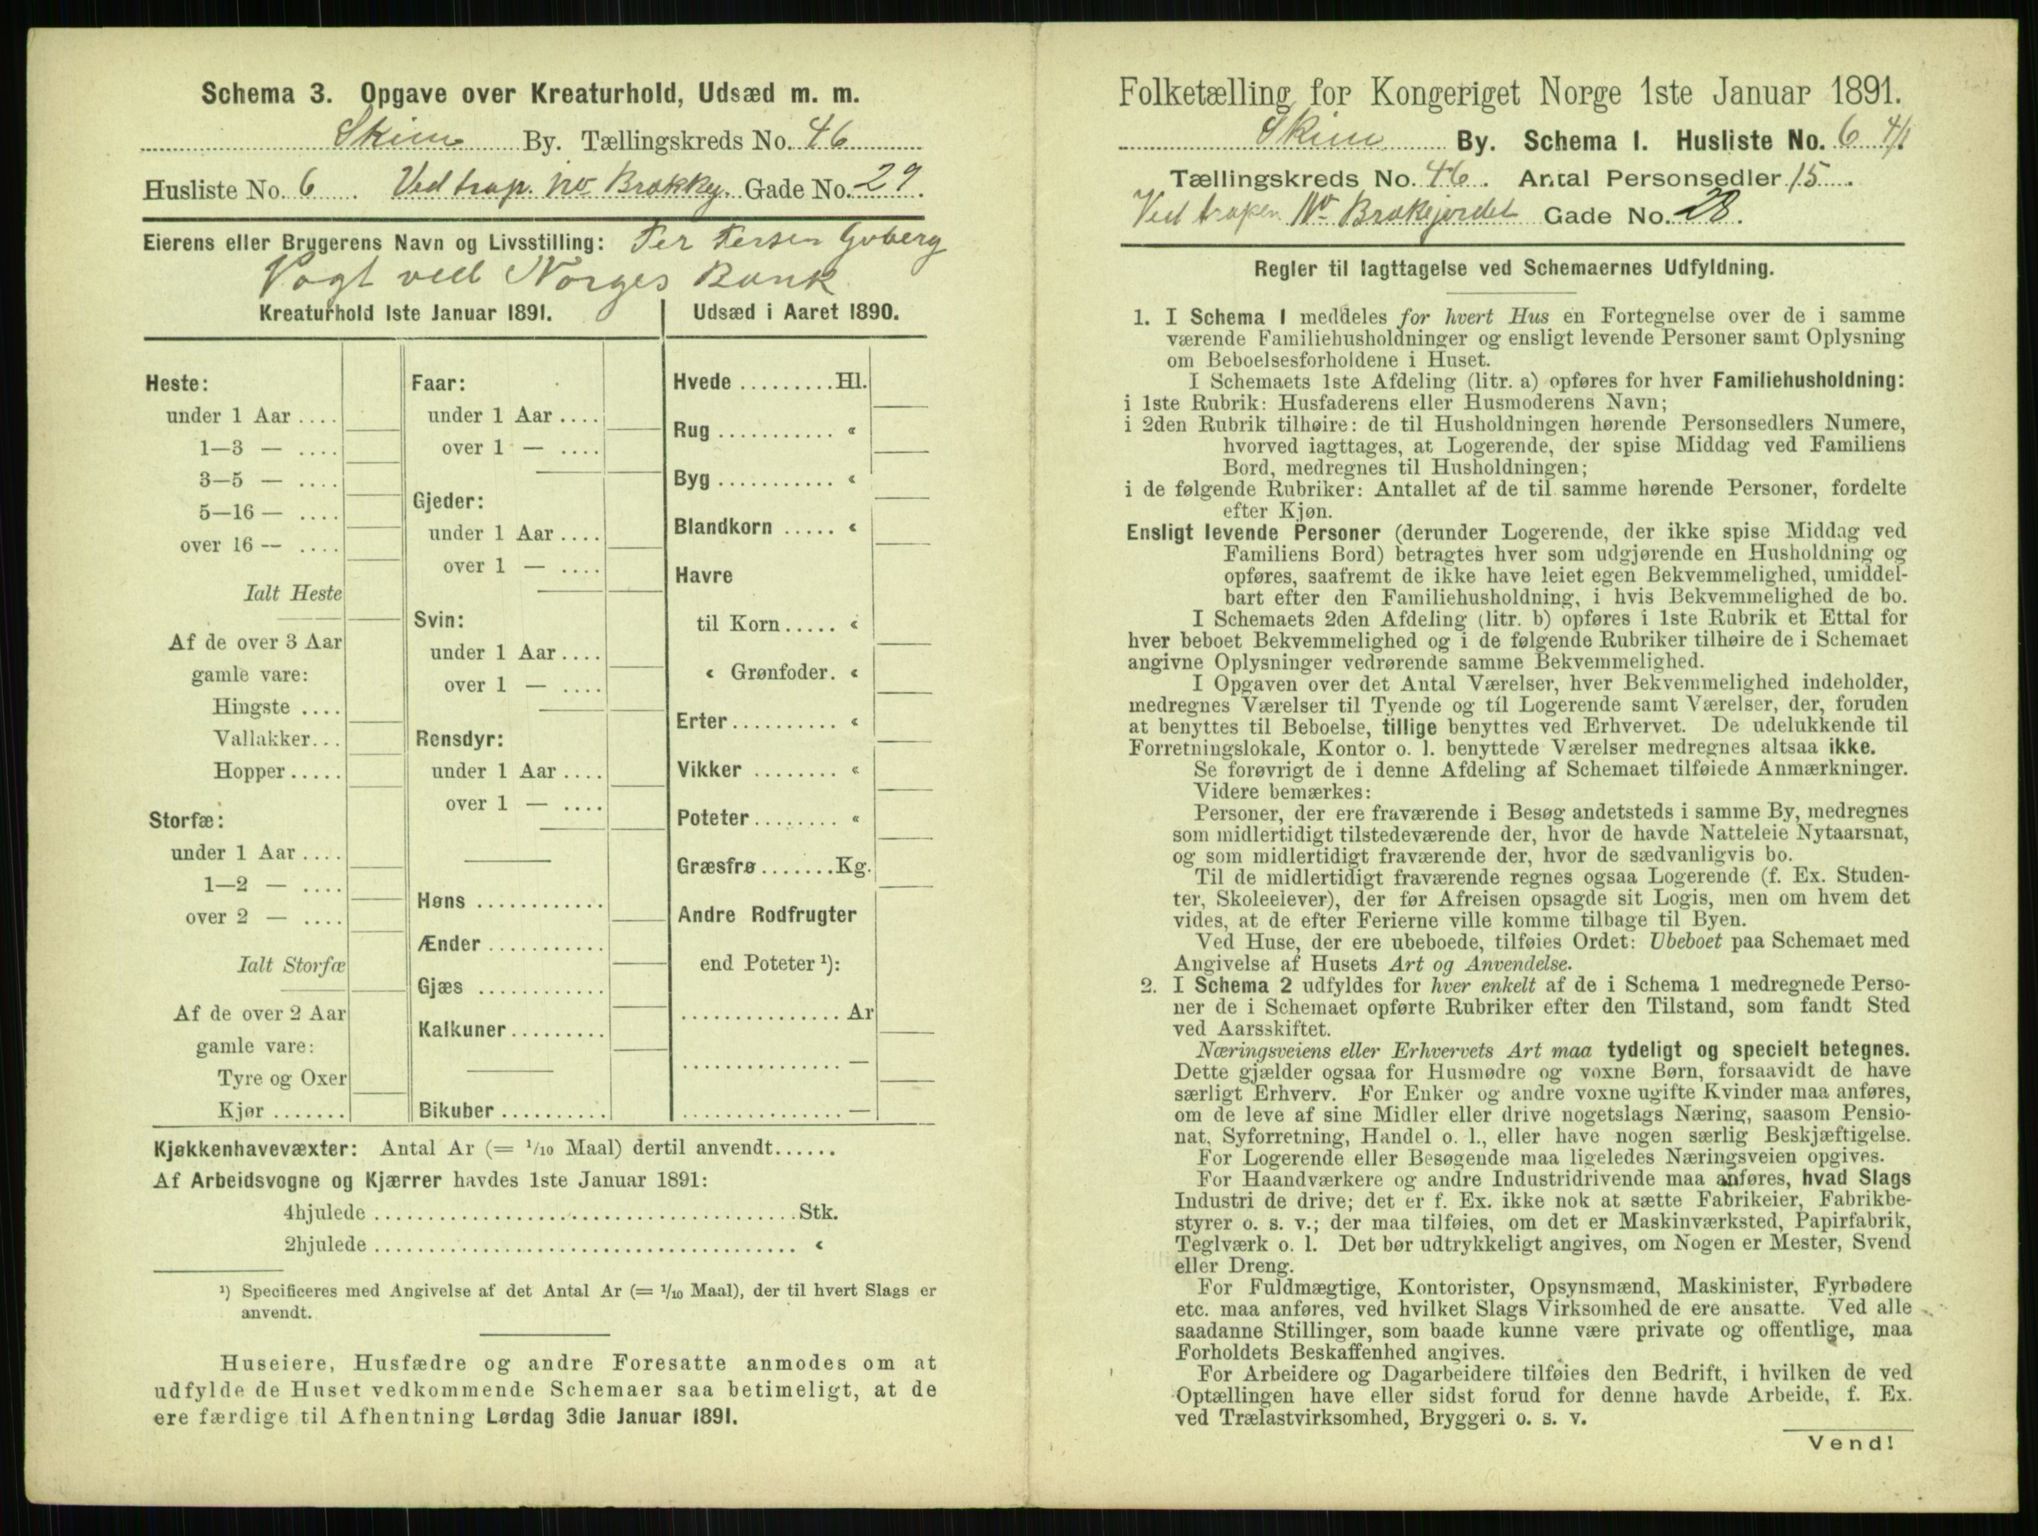 Schema 3. Opgave over Kreaturhold, Udsæd m. m.
Skien By. Tællingskreds No. 46
Husliste No. 6 Ved trap. Nv Brækkej. Gade No. 29.
Eierens eller Brugerens Navn og Livsstilling: Per Persen Goberg
Vogt ved Norges Bank
Kreaturhold 1ste Januar 1891.
Heste:
under 1 Aar ....
1—3 — ....
3—5 — ....
5—16 — ....
over 16 — ....
Ialt Heste
Af de over 3 Aar
gamle vare:
Hingste ....
Vallakker...
Hopper.....
Storfæ:
under 1 Aar ....
1—2 — ....
over 2 — ....
Ialt Storfæ
Af de over 2 Aar
gamle vare:
Tyre og Oxer
Kjør .......
Faar:
under 1 Aar ....
over 1 — ....
Gjeder:
under 1 Aar ....
over 1 — ....
Svin:
under 1 Aar ....
over 1 — ....
Rensdyr:
under 1 Aar ....
over 1 — ....
Høns ............
Ænder ...........
Gjæs ............
Kalkuner.........
Bikuber ..........
Udsæd i Aaret 1890.
Hvede .........Hl.
Rug ........... «
Byg ........... «
Blandkorn ..... «
Havre
til Korn..... «
« Grønfoder. «
Erter.......... «
Vikker ........ «
Poteter........ «
Græsfrø.......Kg.
Andre Rodfrugter
end Poteter ¹):
............... Ar
............... —
............... —
Kjøkkenhavevæxter: Antal Ar (= 1/10 Maal) dertil anvendt......
Af Arbeidsvogne og Kjærrer havdes 1ste Januar 1891:
4hjulede .......................................Stk.
2hjulede ....................................... «
¹) Specificeres med Angivelse af det Antal Ar (= 1/10 Maal), der til hvert Slags er
anvendt.
Huseiere, Husfædre og andre Foresatte anmodes om at
udfylde de Huset vedkommende Schemaer saa betimeligt, at de
ere færdige til Afhentning Lørdag 3die Januar 1891.
Folketælling for Kongeriget Norge 1ste Januar 1891.
Skien By. Schema I. Husliste No. 6 4/1
Tællingskreds No. 46. Antal Personsedler 15.
Ved trapen Nv Brækejordet Gade No. 28.
Regler til Iagttagelse ved Schemaernes Udfyldning.
1. I Schema 1 meddeles for hvert Hus en Fortegnelse over de i samme
værende Familiehusholdninger og ensligt levende Personer samt Oplysning
om Beboelsesforholdene i Huset.
I Schemaets 1ste Afdeling (litr. a) opføres for hver Familiehusholdning:
i 1ste Rubrik: Husfaderens eller Husmoderens Navn;
i 2den Rubrik tilhøire: de til Husholdningen hørende Personsedlers Numere,
hvorved iagttages, at Logerende, der spise Middag ved Familiens
Bord, medregnes til Husholdningen;
i de følgende Rubriker: Antallet af de til samme hørende Personer, fordelte
efter Kjøn.
Ensligt levende Personer (derunder Logerende, der ikke spise Middag ved
Familiens Bord) betragtes hver som udgjørende en Husholdning og
opføres, saafremt de ikke have leiet egen Bekvemmelighed, umiddel-
bart efter den Familiehusholdning, i hvis Bekvemmelighed de bo.
I Schemaets 2den Afdeling (litr. b) opføres i 1ste Rubrik et Ettal for
hver beboet Bekvemmelighed og i de følgende Rubriker tilhøire de i Schemaet
angivne Oplysninger vedrørende samme Bekvemmelighed.
I Opgaven over det Antal Værelser, hver Bekvemmelighed indeholder,
medregnes Værelser til Tyende og til Logerende samt Værelser, der, foruden
at benyttes til Beboelse, tillige benyttes ved Erhvervet. De udelukkende til
Forretningslokale, Kontor o. l. benyttede Værelser medregnes altsaa ikke.
Se forøvrigt de i denne Afdeling af Schemaet tilføiede Anmærkninger.
Videre bemærkes:
Personer, der ere fraværende i Besøg andetsteds i samme By, medregnes
som midlertidigt tilstedeværende der, hvor de havde Natteleie Nytaarsnat,
og som midlertidigt fraværende der, hvor de sædvanligvis bo.
Til de midlertidigt fraværende regnes ogsaa Logerende (f. Ex. Studen-
ter, Skoleelever), der før Afreisen opsagde sit Logis, men om hvem det
vides, at de efter Ferierne ville komme tilbage til Byen.
Ved Huse, der ere ubeboede, tilføies Ordet: Ubeboet paa Schemaet med
Angivelse af Husets Art og Anvendelse.
2. I Schema 2 udfyldes for hver enkelt af de i Schema 1 medregnede Perso-
ner de i Schemaet opførte Rubriker efter den Tilstand, som fandt Sted
ved Aarsskiftet.
Næringsveiens eller Erhvervets Art maa tydeligt og specielt betegnes.
Dette gjælder ogsaa for Husmødre og voxne Børn, forsaavidt de have
særligt Erhverv. For Enker og andre voxne ugifte Kvinder maa anføres,
om de leve af sine Midler eller drive nogetslags Næring, saasom Pensio-
nat, Syforretning, Handel o. l., eller have nogen særlig Beskjæftigelse.
For Logerende eller Besøgende maa ligeledes Næringsveien opgives.
For Haandværkere og andre Industridrivende maa anføres, hvad Slags
Industri de drive; det er f. Ex. ikke nok at sætte Fabrikeier, Fabrikbe-
styrer o. s. v.; der maa tilføies, om det er Maskinværksted, Papirfabrik,
Teglværk o. l. Det bør udtrykkeligt angives, om Nogen er Mester, Svend
eller Dreng.
For Fuldmægtige, Kontorister, Opsynsmænd, Maskinister, Fyrbødere
etc. maa anføres, ved hvilket Slags Virksomhed de ere ansatte. Ved alle
saadanne Stillinger, som baade kunne være private og offentlige, maa
Forholdets Beskaffenhed angives.
For Arbeidere og Dagarbeidere tilføies den Bedrift, i hvilken de ved
Optællingen have eller sidst forud for denne havde Arbeide, f. Ex.
ved Trælastvirksomhed, Bryggeri o. s. v.
Vend!